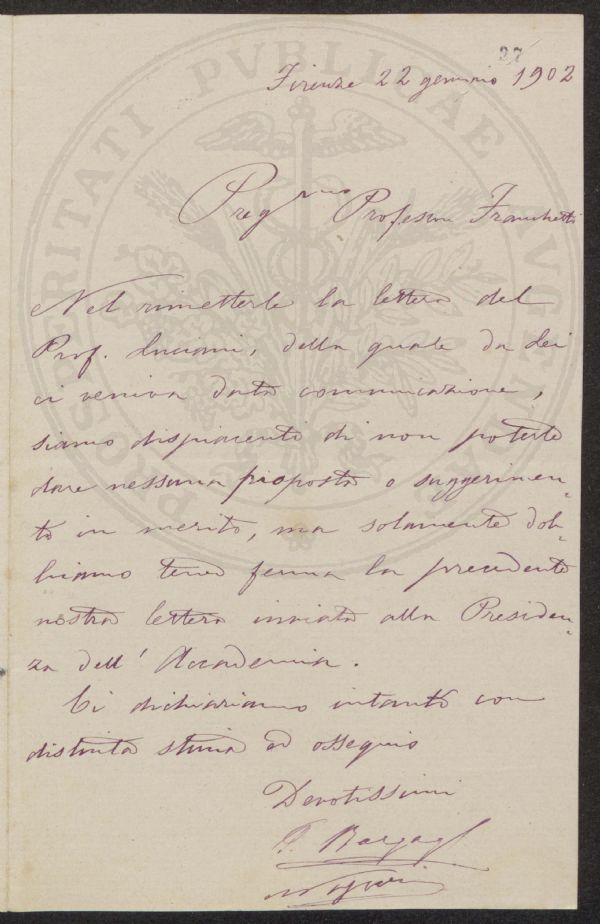 27
Firenze 22 gennaio 1902
Preg.mo Professore Franchetti
Nel rimetterle la lettera del
Prof. Luciani, della quale da Lei
ci veniva data comunicazione,
siamo dispiacenti di non poterle
dare nessuna proposta o suggerimen-
to in merito, ma solamente dob-
biamo tener ferma la precedente
nostra lettera inviata alla Presiden-
za dell' Accademia.
Ci dichiariamo intanto con
distinta stima ed ossequio
Devotissimi
P. Bargagli
PROSPERITATI PVBLICAE AVGENDAE